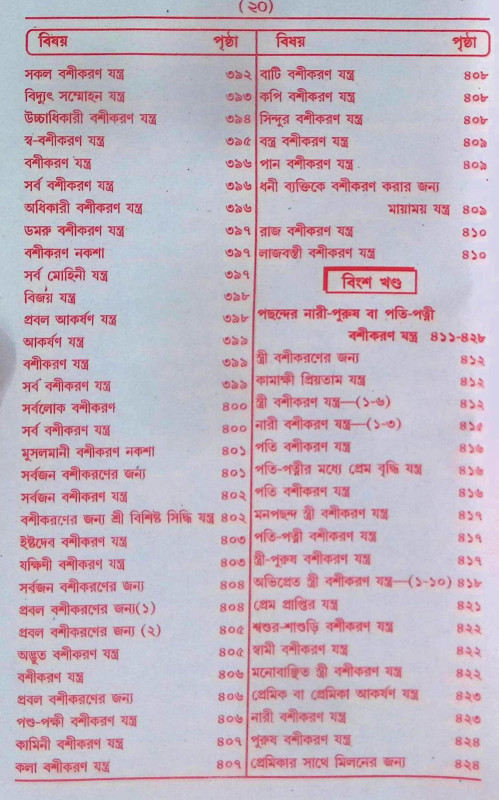 (২০)
বিষয় পৃষ্ঠা
সকল বশীকরণ যন্ত্র ৩৯২
বিদ্যুৎ সম্মোহন যন্ত্র ৩৯৩
উচ্চাধিকারী বশীকরণ যন্ত্র ৩৯৪
স্ব-বশীকরণ যন্ত্র ৩৯৫
বশীকরণ যন্ত্র ৩৯৬
সর্ব বশীকরণ যন্ত্র ৩৯৬
অধিকারী বশীকরণ যন্ত্র ৩৯৬
ডমরু বশীকরণ যন্ত্র ৩৯৭
বশীকরণ নকশা ৩৯৭
সর্ব মোহিনী যন্ত্র ৩৯৭
বিজয় যন্ত্র ৩৯৮
প্রবল আকর্ষণ যন্ত্র ৩৯৮
আকর্ষণ যন্ত্র ৩৯৯
বশীকরণ যন্ত্র ৩৯৯
সর্ব বশীকরণ যন্ত্র ৩৯৯
সর্বলোক বশীকরণ ৪০০
সর্ব বশীকরণ যন্ত্র ৪০০
মুসলমানী বশীকরণ নকশা ৪০১
সর্বজন বশীকরণের জন্য ৪০১
সর্বজন বশীকরণ যন্ত্র ৪০২
বশীকরণের জন্য শ্রী বিশিষ্ট সিদ্ধি যন্ত্র ৪০২
ইষ্টদেব বশীকরণ যন্ত্র ৪০৩
যক্ষিণী বশীকরণ যন্ত্র ৪০৩
সর্বজন বশীকরণের জন্য ৪০৪
প্রবল বশীকরণের জন্য(১) ৪০৪
প্রবল বশীকরণের জন্য (২) ৪০৫
অদ্ভুত বশীকরণ যন্ত্র ৪০৫
বশীকরণ যন্ত্র ৪০৬
প্রবল বশীকরণের জন্য ৪০৬
পশু-পক্ষী বশীকরণ যন্ত্র ৪০৬
কামিনী বশীকরণ যন্ত্র ৪০৭
কলা বশীকরণ যন্ত্র ৪০৭
বিষয় পৃষ্ঠা
বাটি বশীকরণ যন্ত্র ৪০৮
কপি বশীকরণ যন্ত্র ৪০৮
সিন্দুর বশীকরণ যন্ত্র ৪০৮
বস্ত্র বশীকরণ যন্ত্র ৪০৯
পান বশীকরণ যন্ত্র ৪০৯
ধনী ব্যক্তিকে বশীকরণ করার জন্য
মায়াময় যন্ত্র ৪০৯
রাজ বশীকরণ যন্ত্র ৪১০
লাজবন্তী বশীকরণ যন্ত্র ৪১০
বিংশ খণ্ড
পছন্দের নারী-পুরুষ বা পতি-পত্নী
বশীকরণ যন্ত্র ৪১১-৪২৮
স্ত্রী বশীকরণের জন্য ৪১২
কামাক্ষী প্রিয়তাম যন্ত্র ৪১২
স্ত্রী বশীকরণ যন্ত্র—(১-৬) ৪১২
নারী বশীকরণ যন্ত্র—(১-৩) ৪১৫
পতি বশীকরণ যন্ত্র ৪১৬
পতি-পত্নীর মধ্যে প্রেম বৃদ্ধি যন্ত্র ৪১৬
পতি বশীকরণ যন্ত্র ৪১৬
মনপছন্দ স্ত্রী বশীকরণ যন্ত্র ৪১৭
পতি-পত্নী বশীকরণ যন্ত্র ৪১৭
স্ত্রী-পুরুষ বশীকরণ যন্ত্র ৪১৭
অভিপ্রেত স্ত্রী বশীকরণ যন্ত্র—(১-১০) ৪১৮
প্রেম প্রাপ্তির যন্ত্র ৪২১
শ্বশুর-শাশুড়ি বশীকরণ যন্ত্র ৪২২
স্বামী বশীকরণ যন্ত্র ৪২২
মনোবাঞ্ছিত স্ত্রী বশীকরণ যন্ত্র ৪২২
প্রেমিক বা প্রেমিকা আকর্ষণ যন্ত্র ৪২৩
নারী বশীকরণ যন্ত্র ৪২৩
পুরুষ বশীকরণ যন্ত্র ৪২৪
প্রেমিকার সাথে মিলনের জন্য ৪২৪